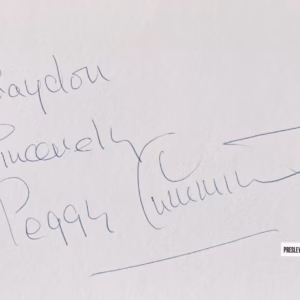 aydon
Sincerely
Peggy Cummins
PRESLEY